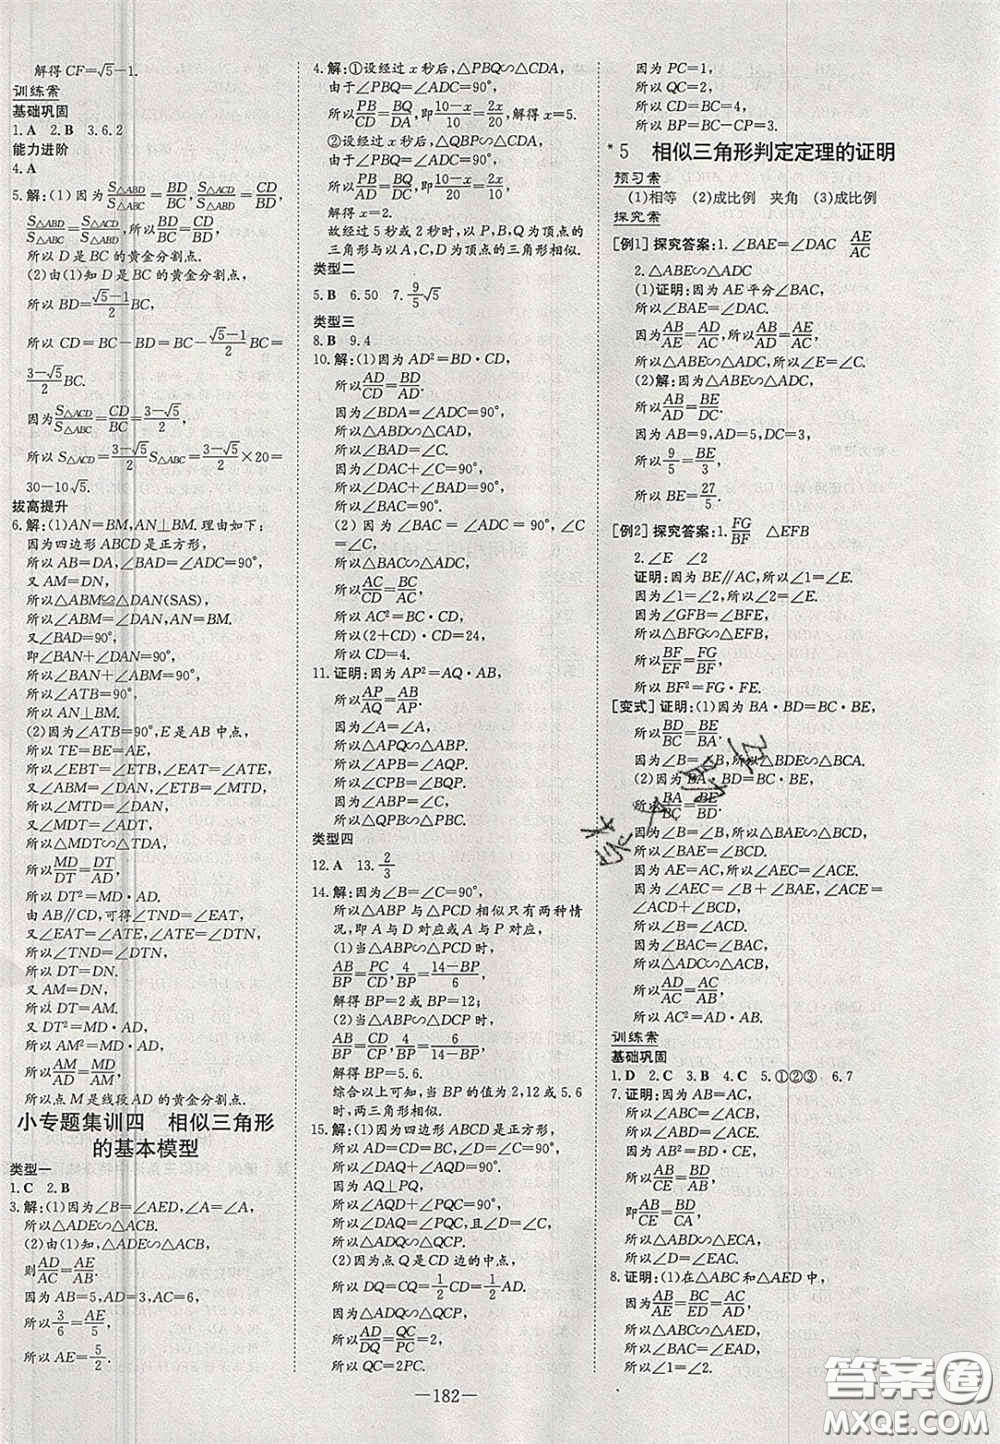 解得 CF=√5-1.
训练案
基础巩固
1.A 2.B 3.6.2
能力进阶
4.A
5.解:(1)因为 S△ABD/S△ABC=BD/BC, S△ACD/S△ABD=CD/BD,
S△ABD/S△ABC=S△ACD/S△ABD, 所以 BD/BC=CD/BD.
所以 D 是 BC 的黄金分割点.
(2)由(1)知 D 是 BC 的黄金分割点,
所以 BD=(√5-1)/2 BC,
所以 CD=BC-BD=BC-(√5-1)/2 BC=
(3-√5)/2 BC.
因为 S△ACD/S△ABC=CD/BC=(3-√5)/2,
所以 S△ACD=(3-√5)/2 S△ABC=(3-√5)/2×20=
30-10√5.
拔高提升
6.解:(1)AN=BM,AN⊥BM.理由如下:
因为四边形 ABCD 是正方形,
所以 AB=DA,∠BAD=∠ADC=90°,
又 AM=DN,
所以△ABM≌△DAN(SAS).
所以∠ABM=∠DAN,AN=BM.
又∠BAD=90°,
即∠BAN+∠DAN=90°,
所以∠BAN+∠ABM=90°.
所以∠ATB=90°.
所以 AN⊥BM.
(2)因为∠ATB=90°,E 是 AB 中点,
所以 TE=BE=AE,
所以∠EBT=∠ETB,∠EAT=∠ETA,
又∠ABM=∠DAN,∠ETB=∠DTM,
所以∠MTD=∠DAN,
又∠MDT=∠ADT,
所以△MDT∽△TDA,
所以 MD/DT=DT/AD,
所以 DT²=MD·AD.
由 AB∥CD,可得∠TND=∠EAT,
又∠EAT=∠ATE,∠ATE=∠DTN,
所以∠TND=∠DTN,
所以 DT=DN.
所以 DT=AM.
又 DT²=MD·AD,
所以 AM²=MD·AD,
所以 AM/AD=MD/AM.
所以点 M 是线段 AD 的黄金分割点.
小专题集训四 相似三角形
的基本模型
类型一
1.C 2.B
3.解:(1)因为∠B=∠AED,∠A=∠A,
所以△ADE∽△ACB.
(2)由(1)知,△ADE∽△ACB,
则 AD/AC=AE/AB.
因为 AB=5,AD=3,AC=6,
所以 3/6=AE/5,
所以 AE=5/2.
4.解:①设经过 x 秒后,△PBQ∽△CDA,
由于∠PBQ=∠ADC=90°,
所以 PB/CD=BQ/DA,即(10-x)/10=2x/20,解得 x=5.
②设经过 x 秒后,△QBP∽△CDA,
由于∠PBQ=∠ADC=90°,
所以 PB/DA=BQ/CD,即(10-x)/20=2x/10,
解得 x=2.
故经过 5 秒或 2 秒时,以 P,B,Q 为顶点的
三角形与以 A,C,D 为顶点的三角形相似.
类型二
5.B 6.50 7.9/5 √5
类型三
8.B 9.4
10.解:(1)因为 AD²=BD·CD,
所以 AD/CD=BD/AD.
因为∠BDA=∠ADC=90°,
所以△ABD∽△CAD,
所以∠BAD=∠C.
因为∠DAC+∠C=90°,
所以∠DAC+∠BAD=90°.
所以∠BAC=90°.
(2)因为∠BAC=∠ADC=90°,∠C
=∠C,
所以△BAC∽△ADC,
所以 AC/CD=BC/AC,
所以 AC²=BC·CD,
所以(2+CD)·CD=24,
所以 CD=4.
11.证明:因为 AP²=AQ·AB,
所以 AP/AQ=AB/AP.
因为∠A=∠A,
所以△APQ∽△ABP.
所以∠APB=∠AQP.
所以∠CPB=∠BQP.
因为∠APC=∠ABP,
所以△QPB∽△CBP.
类型四
12.A 13.2/3
14.解:因为∠B=∠C=90°,
所以△ABP 与△PCD 相似只有两种情
况,即 A 与 D 对应或 A 与 P 对应.
(1)当△ABP∽△PCD 时,
AB/BP=PC/CD,4/BP=(14-BP)/6,
解得 BP=2 或 BP=12;
(2)当△ABP∽△DCP 时,
AB/BP=CD/PC,4/BP=6/(14-BP),
解得 BP=5.6.
综合以上可知,当 BP 的值为 2,12 或 5.6
时,两三角形相似.
15.解:(1)因为四边形 ABCD 是正方形,
所以∠ADQ=∠QCP=90°,
所以∠DAQ+∠AQD=90°.
因为 AQ⊥PQ,
所以∠AQD+∠PQC=90°,
所以∠DAQ=∠PQC,且∠ADQ=∠QCP,
所以△ADQ∽△QCP.
(2)因为点 Q 是 CD 边的中点,
所以 DQ=CQ=1/2 CD=1/2 AD.
因为△ADQ∽△QCP,
所以 AD/DQ=QC/PC=2,
所以 QC=2PC.
因为 PC=1,
所以 QC=2,
所以 BC=CD=4,
所以 BP=BC-CP=3.
*5 相似三角形判定定理的证明
预习案
(1)相等 (2)成比例 夹角 (3)成比例
探究案
[例1]探究答案:1.∠BAE=∠DAC AE/AC
2.△ABE∽△ADC
(1)证明:因为 AE 平分∠BAC,
所以∠BAE=∠DAC.
因为 AB/AD=AE/AC,所以 AB/AE=AD/AC,
所以△ABE∽△ADC,所以∠E=∠C.
(2)解:因为△ABE∽△ADC,
所以 AB/AD=BE/DC.
因为 AB=9,AD=5,DC=3,
所以 9/5=BE/3,
所以 BE=27/5.
[例2]探究答案:1.FG/BF △EFB
2.∠E ∠2
证明:因为 BE∥AC,所以∠1=∠E.
因为∠1=∠2,所以∠2=∠E.
又因为∠GFB=∠BFE,
所以△BFG∽△EFB,
所以 BF/EF=FG/BF,
所以 BF²=FG·FE.
[变式]证明:(1)因为 BA·BD=BC·BE,
所以 BD/BC=BE/BA,
因为∠B=∠B,所以△BDE∽△BCA.
(2)因为 BA·BD=BC·BE,
所以 BA/BC=BE/BD.
因为∠B=∠B,所以△BAE∽△BCD,
所以∠BAE=∠BCD.
因为∠AED=∠BAE+∠B,∠ACE=
∠ACD+∠BCD,
所以∠B=∠ACD.
因为∠BAC=∠BAC,
所以△ADC∽△ACB,
所以 AD/AC=AC/AB,
所以 AC²=AD·AB.
训练案
基础巩固
1.D 2.C 3.B 4.C 5.①②③ 6.7
7.证明:因为 AB=AC,
所以∠ABC=∠ACB,
所以∠ABD=∠ACE.
因为 AC²=BD·CE,
所以 AC/CE=BD/AC,
即 AB/CE=BD/CA,
所以△ABD∽△ECA,
所以∠D=∠EAC.
8.证明:(1)在△ABC 和△AED 中,
因为 AB/AE=BC/ED=AC/AD,
所以△ABC∽△AED,
所以∠BAC=∠EAD,
—182—
答案圈
MXQE.COM